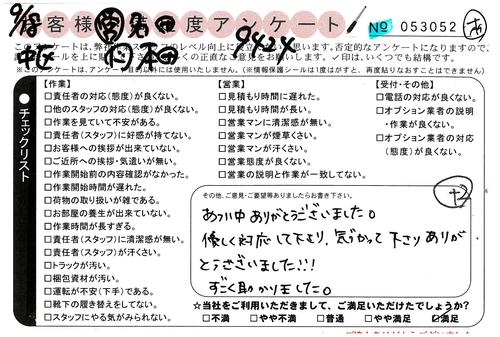 お客様満足度アンケート
№ 053052
0424
このアンケートは、弊社
※このアンケートは、アンケート目的以外には使用いたしません。(※情報保護シールは1度がすと、再度貼りなおすことはできません)
チェックリスト
【作業】
□責任者の対応(態度)が良くない。
□他のスタッフの対応(態度)が良くない。
□作業を見ていて不安がある。
□責任者(スタッフ)に好感が持てない。
□お客様への挨拶が出来ていない。
□ご近所への挨拶・気遣いが無い。
□作業開始前の内容確認がなかった。
□作業開始時間が遅れた。
□荷物の取り扱いが雑である。
□お部屋の養生が出来ていない。
□作業時間が長すぎる。
□責任者(スタッフ)に清潔感が無い。
□責任者(スタッフ)が汗くさい。
□トラックが汚い。
□梱包資材が汚い。
□運転が不安(下手)である。
□靴下の履き替えをしてない。
□スタッフにやる気がみられない。
【営業】
□見積もり時間に遅れた。
□見積もり時間が長い。
□営業マンに清潔感が無い。
□営業マンが煙草くさい。
□営業マンが汗くさい。
□営業態度が良くない。
□営業の説明と作業が一致してない。
【受付・その他】
□電話の対応が良くない。
□オプション業者の説明
・作業が良くない。
□オプション業者の対応
(態度)が良くない。
その他、ご意見・ご要望等ありましたらお書き下さい。
ありがとうございました。
優しく対応して下より、気づかって下さりありが
とうございました!!!
すごく助かりました。
☆当社をご利用いただきまして、ご満足いただけたでしょうか?
□不満 □やや不満 □普通 □やや満足 ☑満足